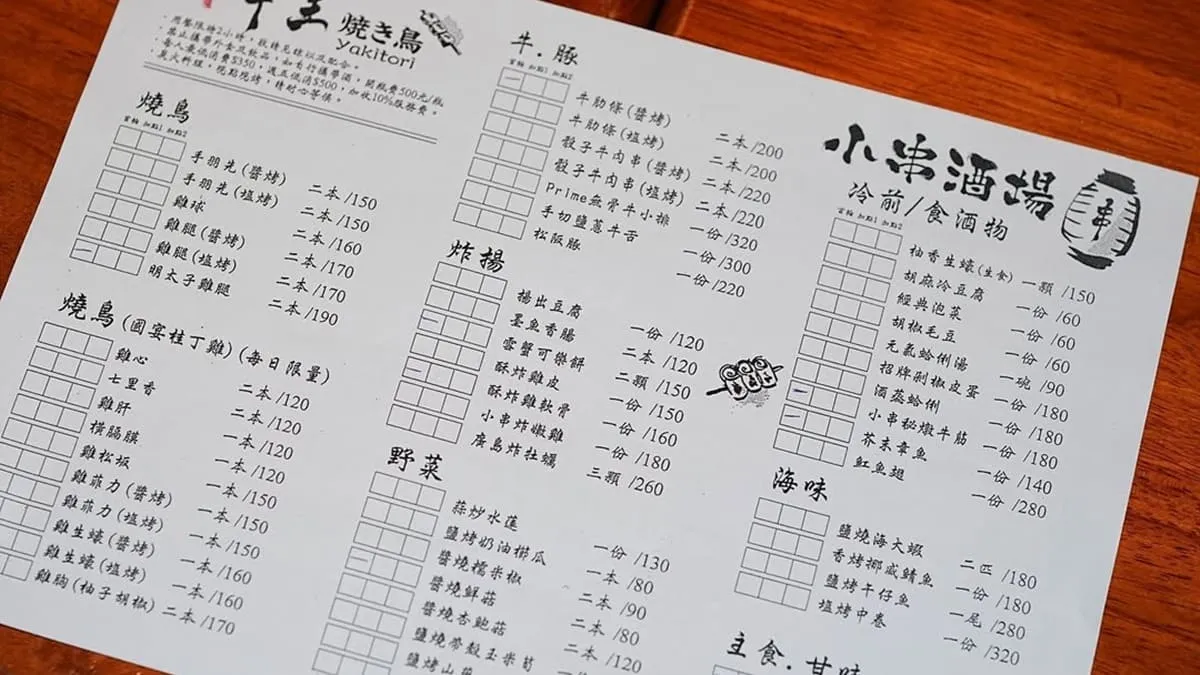 串王 燒き鳥
yakitori
·用餐限時2小時，敬請見諒以及配合。
·禁止攜帶外食及飲品，如有自行攜帶酒，開瓶費500元/瓶
·每人最低消費$350，週五低消$500，加收10%服務費。
·炭火料理，現點現烤，請耐心等候。
燒鳥
首輪 加點1 加點2
手羽先(醬烤) 二本/150
手羽先(塩烤) 二本/150
雞球 二本/160
雞腿(醬烤) 二本/170
雞腿(塩烤) 二本/170
明太子雞腿 二本/190
燒鳥(國宴桂丁雞)(每日限量)
雞心 二本/120
七里香 二本/120
雞肝 一本/120
橫膈膜 一本/150
雞松坂 一本/150
雞菲力(醬烤) 一本/150
雞菲力(塩烤) 一本/160
雞生蠔(醬烤) 一本/160
雞生蠔(塩烤)
雞胸(柚子胡椒) 二本/170
牛.豚
首輪 加點1 加點2
牛肋條(醬烤) 二本/200
牛肋條(塩烤) 二本/200
骰子牛肉串(醬烤) 二本/220
骰子牛肉串(塩烤) 二本/220
Prime無骨牛小排 一份/320
手切鹽蔥牛舌 一份/300
松阪豚 一份/220
炸揚
揚出豆腐 一份/120
墨魚香腸 二本/120
雪蟹可樂餅 二顆/150
酥炸雞皮 一份/150
酥炸雞軟骨 一份/160
小串炸嫩雞 一份/180
廣島炸牡蠣 三顆/260
野菜
蒜炒水蓮 一份/130
鹽烤奶油櫛瓜 一本/80
醬燒糯米椒 二本/90
醬燒鮮菇 二本/80
醬燒杏鮑菇 二本/120
鹽燒帶殼玉米筍
鹽烤山藥
小串酒場
串
冷前/食酒物
首輪 加點1 加點2
柚香生蠔(生食) 一顆/150
胡麻冷豆腐 一份/60
經典泡菜 一份/60
胡椒毛豆 一份/60
元氣蛤俐湯 一碗/90
招牌剁椒皮蛋 一份/180
酒蒸蛤俐 一份/180
小串秘燉牛筋 一份/180
芥末章魚 一份/140
魟魚翅 一份/280
海味
鹽燒海大蝦 二匹/180
香烤挪威鯖魚 一份/180
鹽烤午仔魚 一尾/280
塩烤中卷 一份/320
主食.甘味